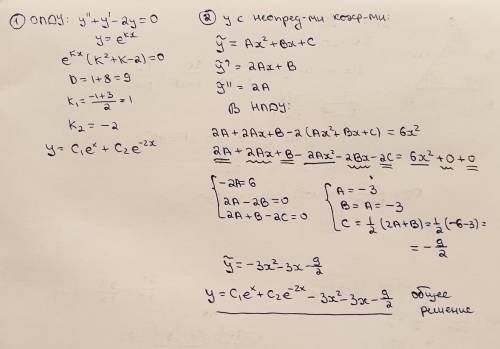 ① ОЛДУ: y'' + y' - 2y = 0
y = e^{kx}
e^{kx} (k² + k - 2) = 0
D = 1 + 8 = 9
k₁ = \frac{-1+3}{2} = 1
k₂ = -2
y = C₁e^x + C₂e^{-2x}
② у с неопред-ми коэф-ми:
ỹ = Ax² + Bx + C
ỹ' = 2Ax + B
ỹ'' = 2A
В НЛДУ:
2A + 2Ax + B - 2 (Ax² + Bx + C) = 6x²
2A + 2Ax + B - 2Ax² - 2Bx - 2C = 6x² + 0 + 0
{ -2A = 6
2A - 2B = 0
2A + B - 2C = 0
{ A = -3
B = A = -3
C = \frac{1}{2} (2A + B) = \frac{1}{2} (-6 - 3) =
= - \frac{9}{2}
ỹ = -3x² - 3x - \frac{9}{2}
y = C₁e^x + C₂e^{-2x} - 3x² - 3x - \frac{9}{2} общее
решение